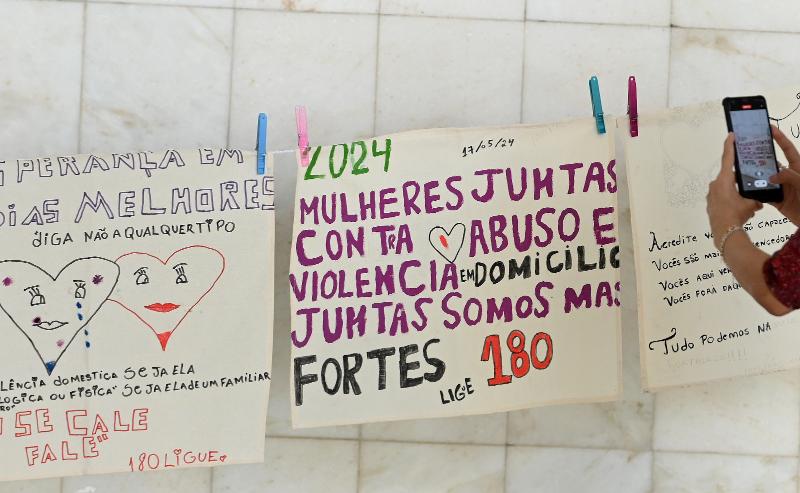 SPERANÇA EM
DIAS MELHORES
DIGA NÃO A QUALQUER TIPO
LÊNCIA DOMESTICA SEJA ELA
LOGICA OU FISICA" SEJA ELA DE UM FAMILIAR
SE CALE
FALE"
180 LIGUE
2024
17/05/24
MULHERES JUNTAS
CONTRA ABUSO E
VIOLENCIA EM DOMICILIO
JUNTAS SOMOS MAS
FORTES 180
LIGE
Acredite
Vocês são mais
Vocês aqui
Vocês fora
Tudo Podemos NA